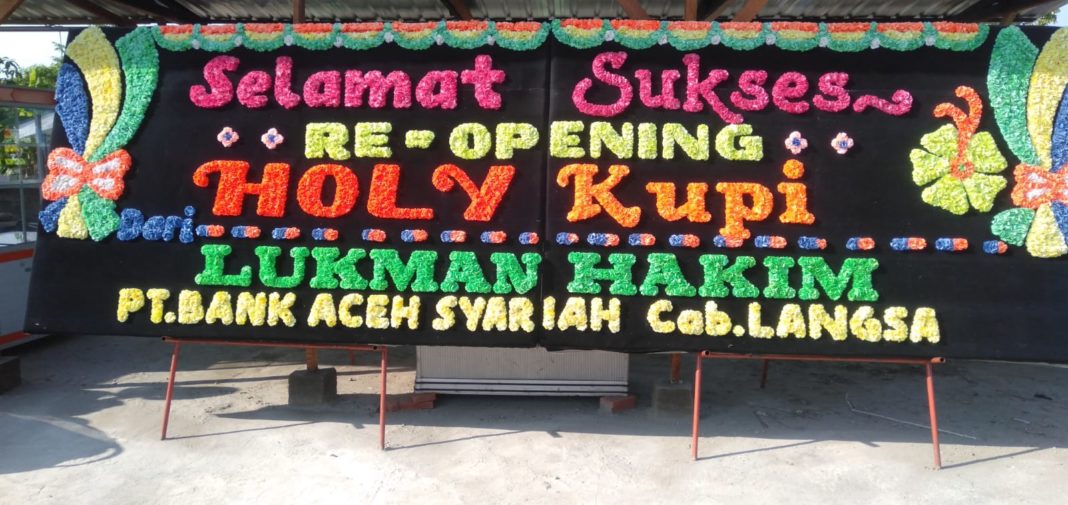 Selamat Sukses
RE-OPENING
HOLY Kupi
Dari
LUKMAN HAKIM
PT. BANK ACEH SYARIAH Cab. LANGSA